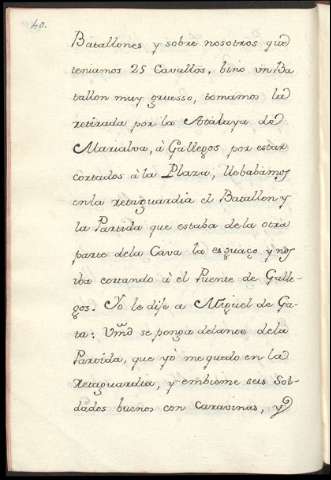 40.
Batallones y sobre nosotros que
teniamos 25 Cavallos, bino vn Ba
tallon muy gruesso, tomamos la
retirada por la Atalaya de
Marialva, â Gallegos por estar
cortados â la Plaza, llebabamos
en la retaguardia el Batallon y
la Partida que estaba de la otra
parte de la Cava la esguaço y nos
iba cortando â el Puente de Galle-
gos. Yo le dije a Miguel de Ga-
ta: Vmd se ponga delante de la
Partida, que yó me quedo en la
Retaguardia, y embieme seis Sol-
dados buenos con Caravinas, y